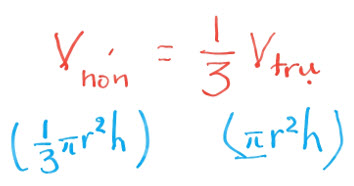 V nón = 1/3 V trụ
(1/3 πr²h) (πr²h)